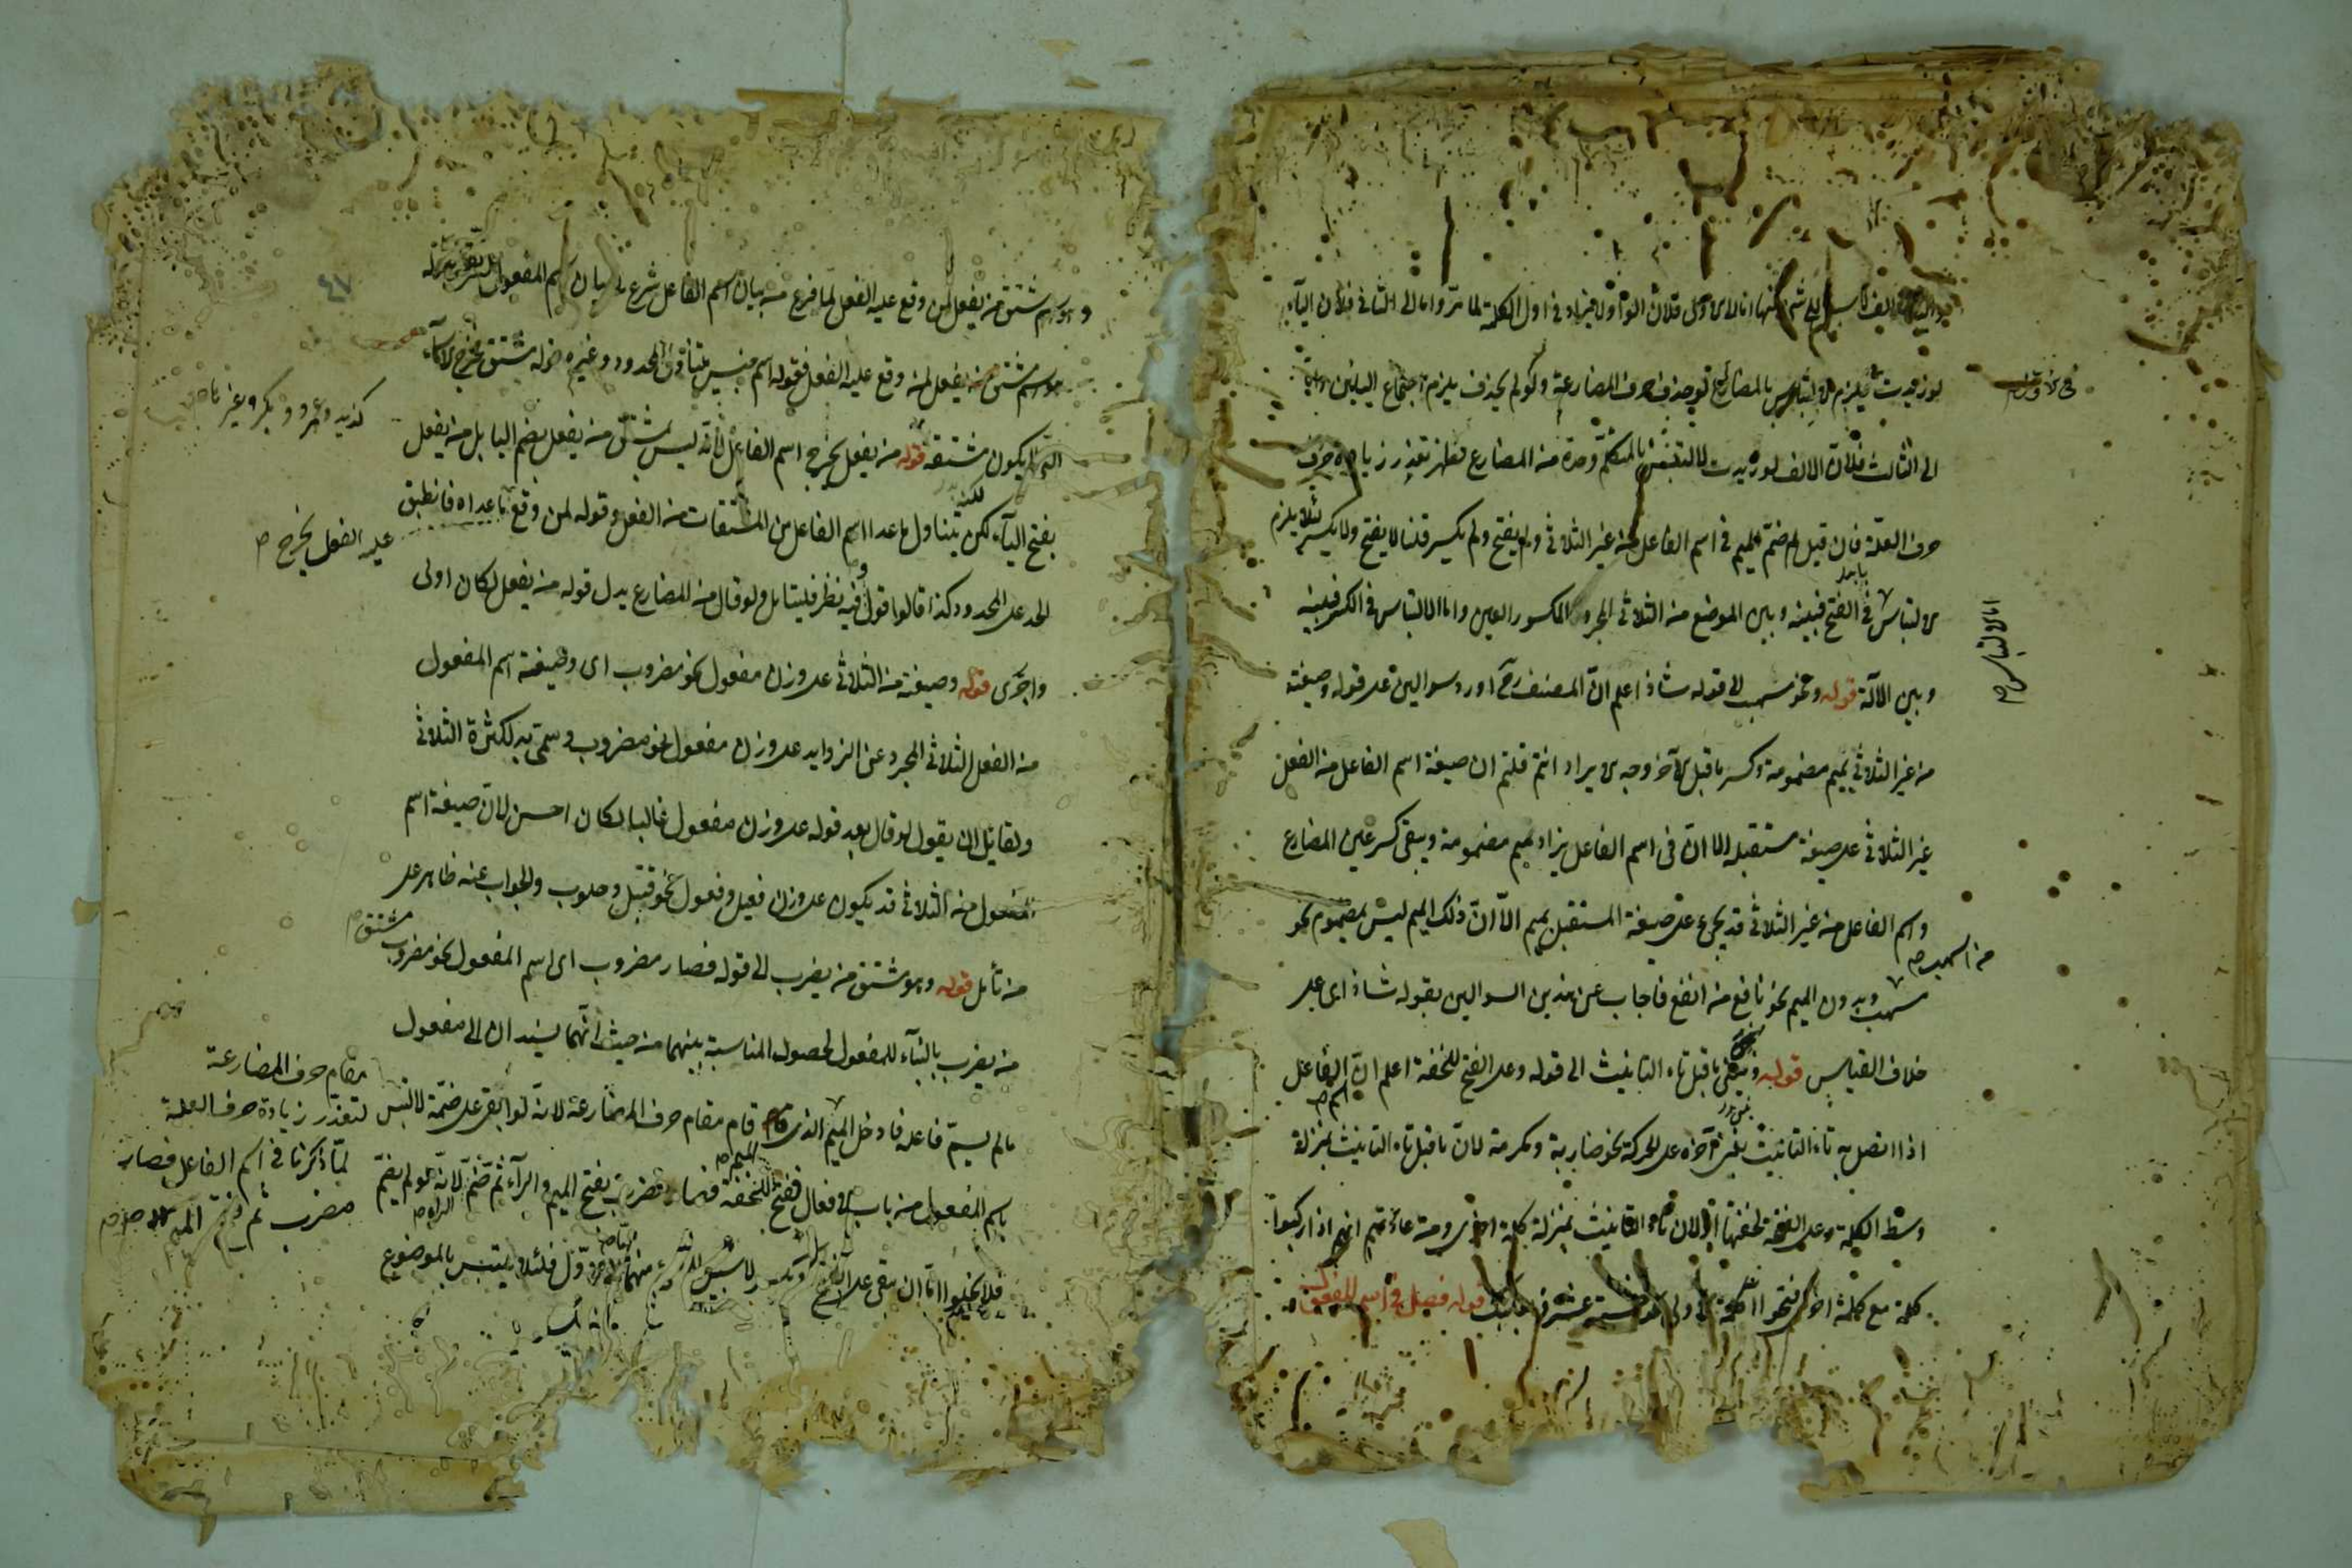 منها اما الاولى فلان الواو لا يزاد في اول الكلمة لما مر واما الى الثاني فلان الياء
لو زيدت يلزم الالتباس بالمضارع لو حذف حرف المضارعة ولو لم يحذف يلزم اجتماع اليائين واما
الى الثالث فلان الالف لو زيدت لالتبس بالمتكلم وحده من المضارع فظهر تعذر زيادة حرف
حرف العلة فان قيل لم ضم الميم في اسم الفاعل من غير الثلاثي ولم يفتح ولم يكسر قلنا لا يفتح ولا يكسر لئلا يلزم
الالتباس في الفتح فبينه وبين الموضع من الثلاثي المجرد المكسور العين واما الالتباس في الكسر فبينه
اما الالتباس صح
وبين الآلة قوله ونحو مسهب الى قوله شاذ اعلم ان المصنف رح اورد سوالين على قوله وصيغته
من غير الثلاثي بميم مضمومة وكسر ما قبل الآخر وجه الايراد انتم قلتم ان صيغة اسم الفاعل من الفعل
غير الثلاثي على صيغة مستقبله الا ان في اسم الفاعل يزاد ميم مضمومة ويبقى كسر عين المضارع
واسم الفاعل من غير الثلاثي قد يجيء على صيغة المستقبل بميم الا ان ذلك الميم ليس بمضموم نحو
من اسهب صح
مسهب وبدون الميم نحو نافع من انفع فاجاب عن هذين السوالين بقوله شاذ اى على
خلاف القياس قوله ويبنى ما قبل تاء التانيث الى قوله وعلى الفتح للخفة اعلم ان الفاعل
اسم صح
اذا اتصل به تاء التانيث يبنى آخره على الحركة نحو ضاربة ومكرمة لان ما قبل تاء التانيث بمنزلة
وسط الكلمة وعلى الفتحة لخفتها لان تاء التانيث بمنزلة كلمة اخرى ومن عادتهم انهم اذا ركبوا
كلمة مع كلمة اخرى فتحوا الكلمة الاولى نحو خمسة عشر قوله فصل في اسم المفعول
٤٧
وهو اسم مشتق من يفعل لمن وقع عليه الفعل لما فرغ من بيان اسم الفاعل شرع في بيان اسم المفعول
هو اسم مشتق من يفعل لمن وقع عليه الفعل فقوله اسم جنس يتناول المحدود وغيره قوله مشتق يخرج الاسماء
كزيد وعمرو وبكر وغيرها
التي لم يكون مشتقة قوله من يفعل يخرج اسم الفاعل لانه ليس بمشتق من يفعل بضم اليا بل من يفعل
بفتح الياء لكن يتناول ما عدا اسم الفاعل من المشتقات من الفعل وقوله لمن وقع ما عداه فانطبق
عليه الفعل يخرج صح
الحد على المحدود كذا قالوا اقول وفيه نظر فليتامل ولو قال من المضارع بدل قوله من يفعل لكان اولى
واحرى قوله وصيغته من الثلاثي على وزن مفعول نحو مضروب اى وصيغة اسم المفعول
من الفعل الثلاثي المجرد عن الزوايد على وزن مفعول نحو مضروب وسمى به لكثرة الثلاثي
ولقايل ان يقول لو قال بعد قوله على وزن مفعول غالبا لكان احسن لان صيغة اسم
مفعول من الثلاثي قد يكون على وزن فعيل وفعول نحو قتيل وحلوب والجواب عنه ظاهر على
من تأمل قوله وهو مشتق من يضرب الى قوله فصار مضروب اى اسم المفعول نحو مضروب
مشتق صح
من يضرب بالبناء للمفعول لحصول المناسبة بينهما من حيث انهما يسندان الى مفعول
ما لم يسم فاعله فادخل الميم الذى قام مقام حرف المضارعة لانه لو ابقى على ضمة لالتبس
مقام حرف المضارعة
لتعذر زيادة حرف العلة
لما ذكرنا في اسم الفاعل فصار
مضرب ثم فتح الميم
باسم المفعول من باب الافعال ففتح للخفة فصار مضرب بفتح الميم والراء ثم ضم لانه لو لم يضم
الراء صح
فلا يخلوا اما ان يبقى على الفتح او يكسر لا سبيل الى منهما اما الاول فلئلا يلتبس بالموضوع